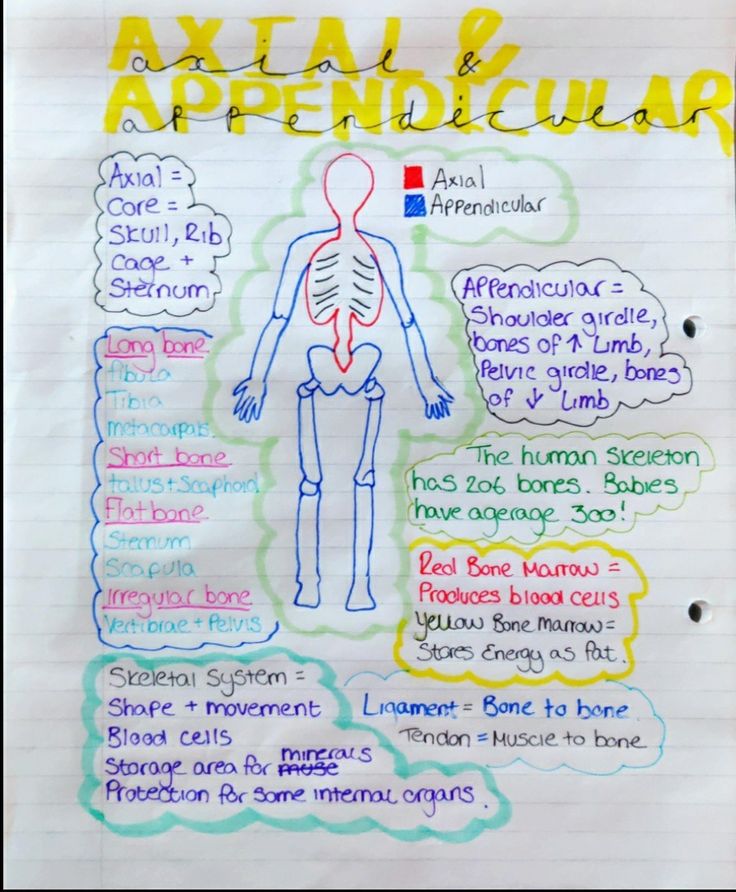 AXIAL &
axial &
APPENDICULAR
appendicular
Axial =
Core =
Skull, Rib
Cage +
Sternum
Axial
Appendicular
Appendicular =
Shoulder girdle,
bones of ↑ Limb,
Pelvic girdle, bones
of ↓ Limb
Long bone
fibula
Tibia
metacarpals.
Short bone
talus + Scaphoid
Flat bone
Sternum
Scapula
Irregular bone
Vertibrae + Pelvis
The human skeleton
has 206 bones. Babies
have agerage 300!
Red Bone Marrow =
Produces blood cells
Yellow Bone marrow =
Stores Energy as Fat.
Skeletal System =
Shape + movement
Blood cells
Storage area for muse minerals
Protection for some internal organs.
Ligament = Bone to bone
Tendon = Muscle to bone